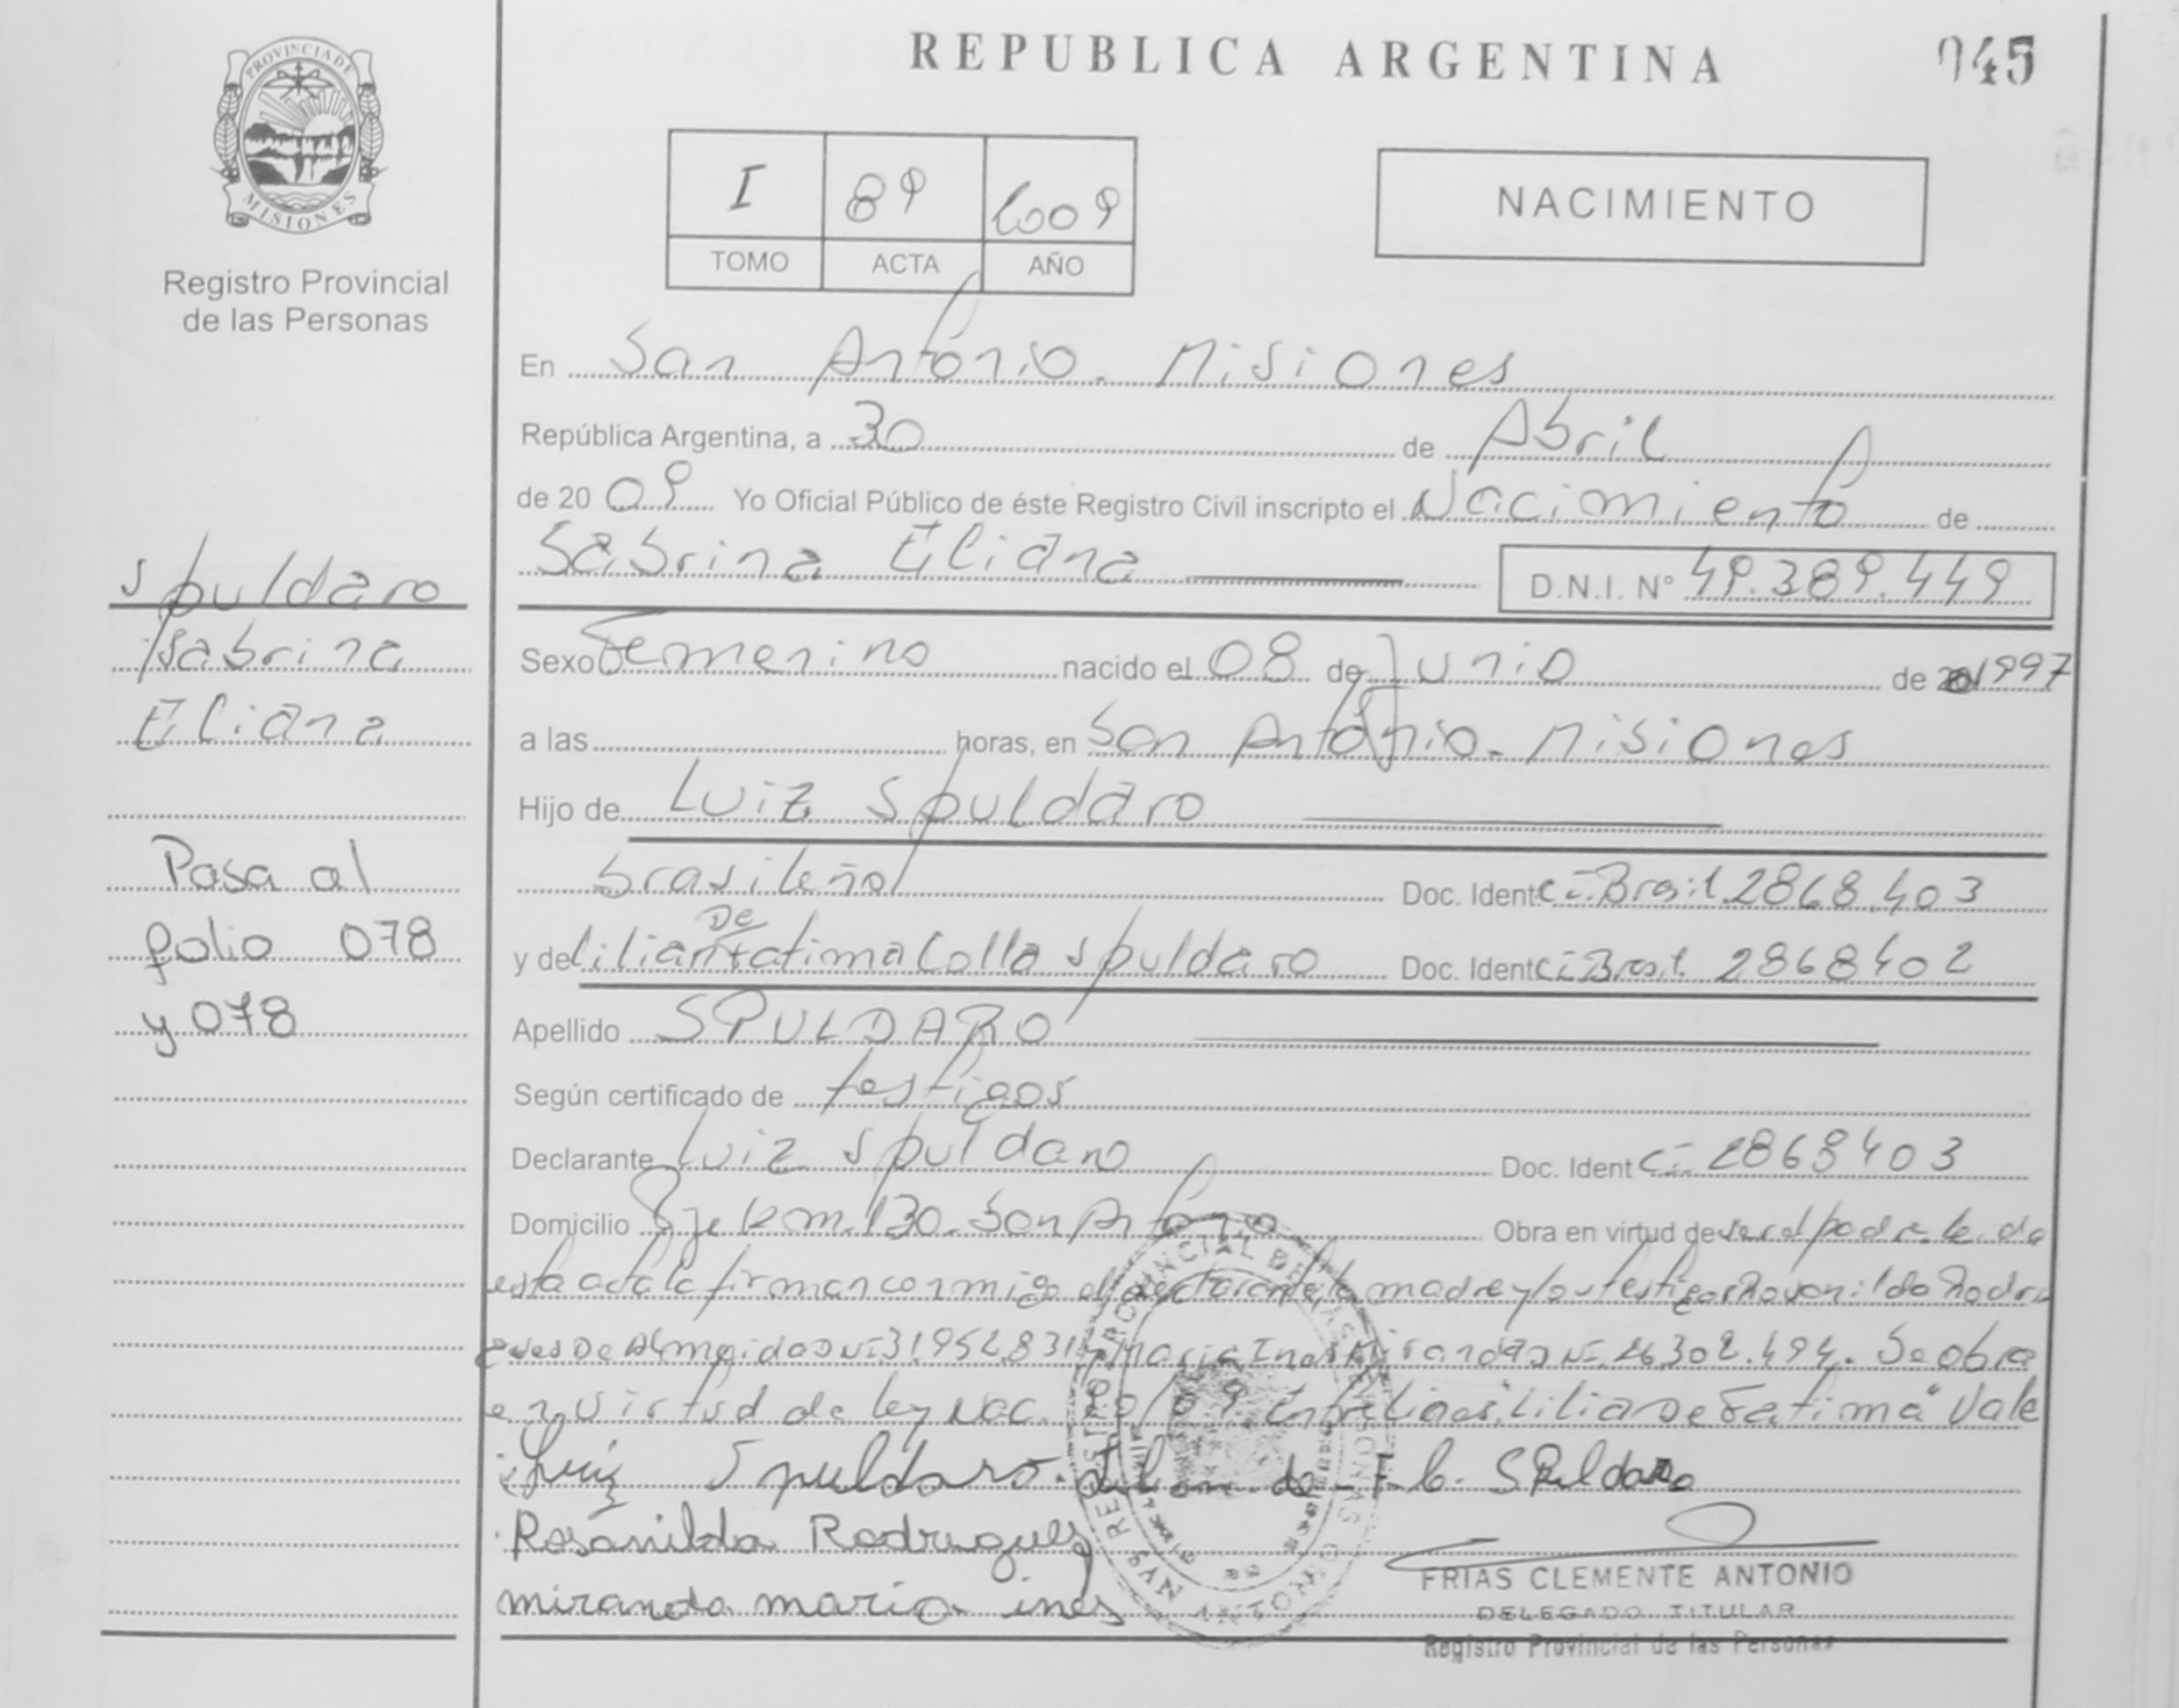 REPUBLICA ARGENTINA
045
PROVINCIA DE
MISIONES
Registro Provincial
de las Personas
I 89 2009
TOMO ACTA AÑO
NACIMIENTO
En San Antonio. Misiones
República Argentina, a 30 de Abril
de 20 09 Yo Oficial Público de éste Registro Civil inscripto el Nacimiento de
Sabrina Eliana D.N.I. Nº 49.389.449
Spuldaro
Sabrina
Eliana
Pasa al
folio 078
y 078
Sexo Femenino nacido el 08 de Junio de 1997
a las horas, en San Antonio. Misiones
Hijo de Luiz Spuldaro
brasileño Doc. Ident Ci. Brasil 2868.403
De
y de Lilian Fatima Colla Spuldaro Doc. Ident Ci Brasil. 2868402
Apellido SPULDARO
Según certificado de testigos
Declarante Luiz Spuldaro Doc. Ident Ci 2868403
Domicilio Pje Km. 130. San Antonio Obra en virtud de ser el padre leida
esta acta la firman conmigo el declarante la madre y los testigos Rosanilda Rodri
gues De Almeida DNI 31.952.831 y Maria Ines Miranda DNI 26.302.494. Se obra
en virtud de ley Nac. 90/09 Entrelineas "Lilian De Fatima" Vale
Luiz Spuldaro. Lilian de F. C. Spuldaro
Rosanilda Rodrugues
miranda maria ines
FRIAS CLEMENTE ANTONIO
DELEGADO TITULAR
Registro Provincial de las Personas